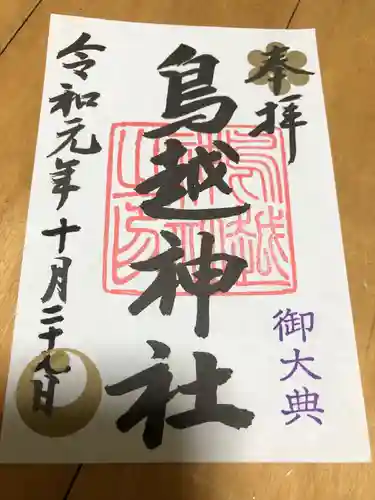 奉拝
御大典
鳥越神社
令和元年十月二十九日